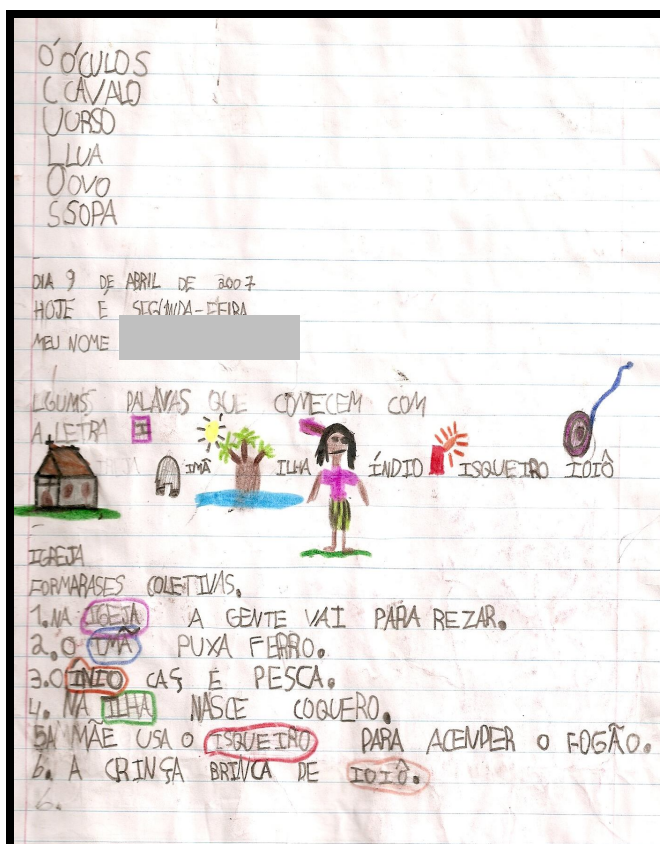 O´ ÓCULOS
C CAVALO
U URSO
L LUA
O OVO
S SOPA
DIA 9 DE ABRIL DE 2007
HOJE E SEGUNDA-FEIRA
MEU NOME
LGUMS PALAVAS QUE COMECEM COM
A LETRA I
IMÃ ILHA ÍNDIO ISQUEIRO IOIÔ
IGREJA
FORMARASES COLETIVAS.
1. NA IGEJA A GENTE VAI PARA REZAR.
2. O IMÃ PUXA FERRO.
3. O ÍNIO CAÇ E PESCA.
4. NA ILHA NASCE COQUERO.
5A MÃE USA O ISQUEIRO PARA ACENDER O FOGÃO.
6. A CRINÇA BRINCA DE IOIÔ.
6.